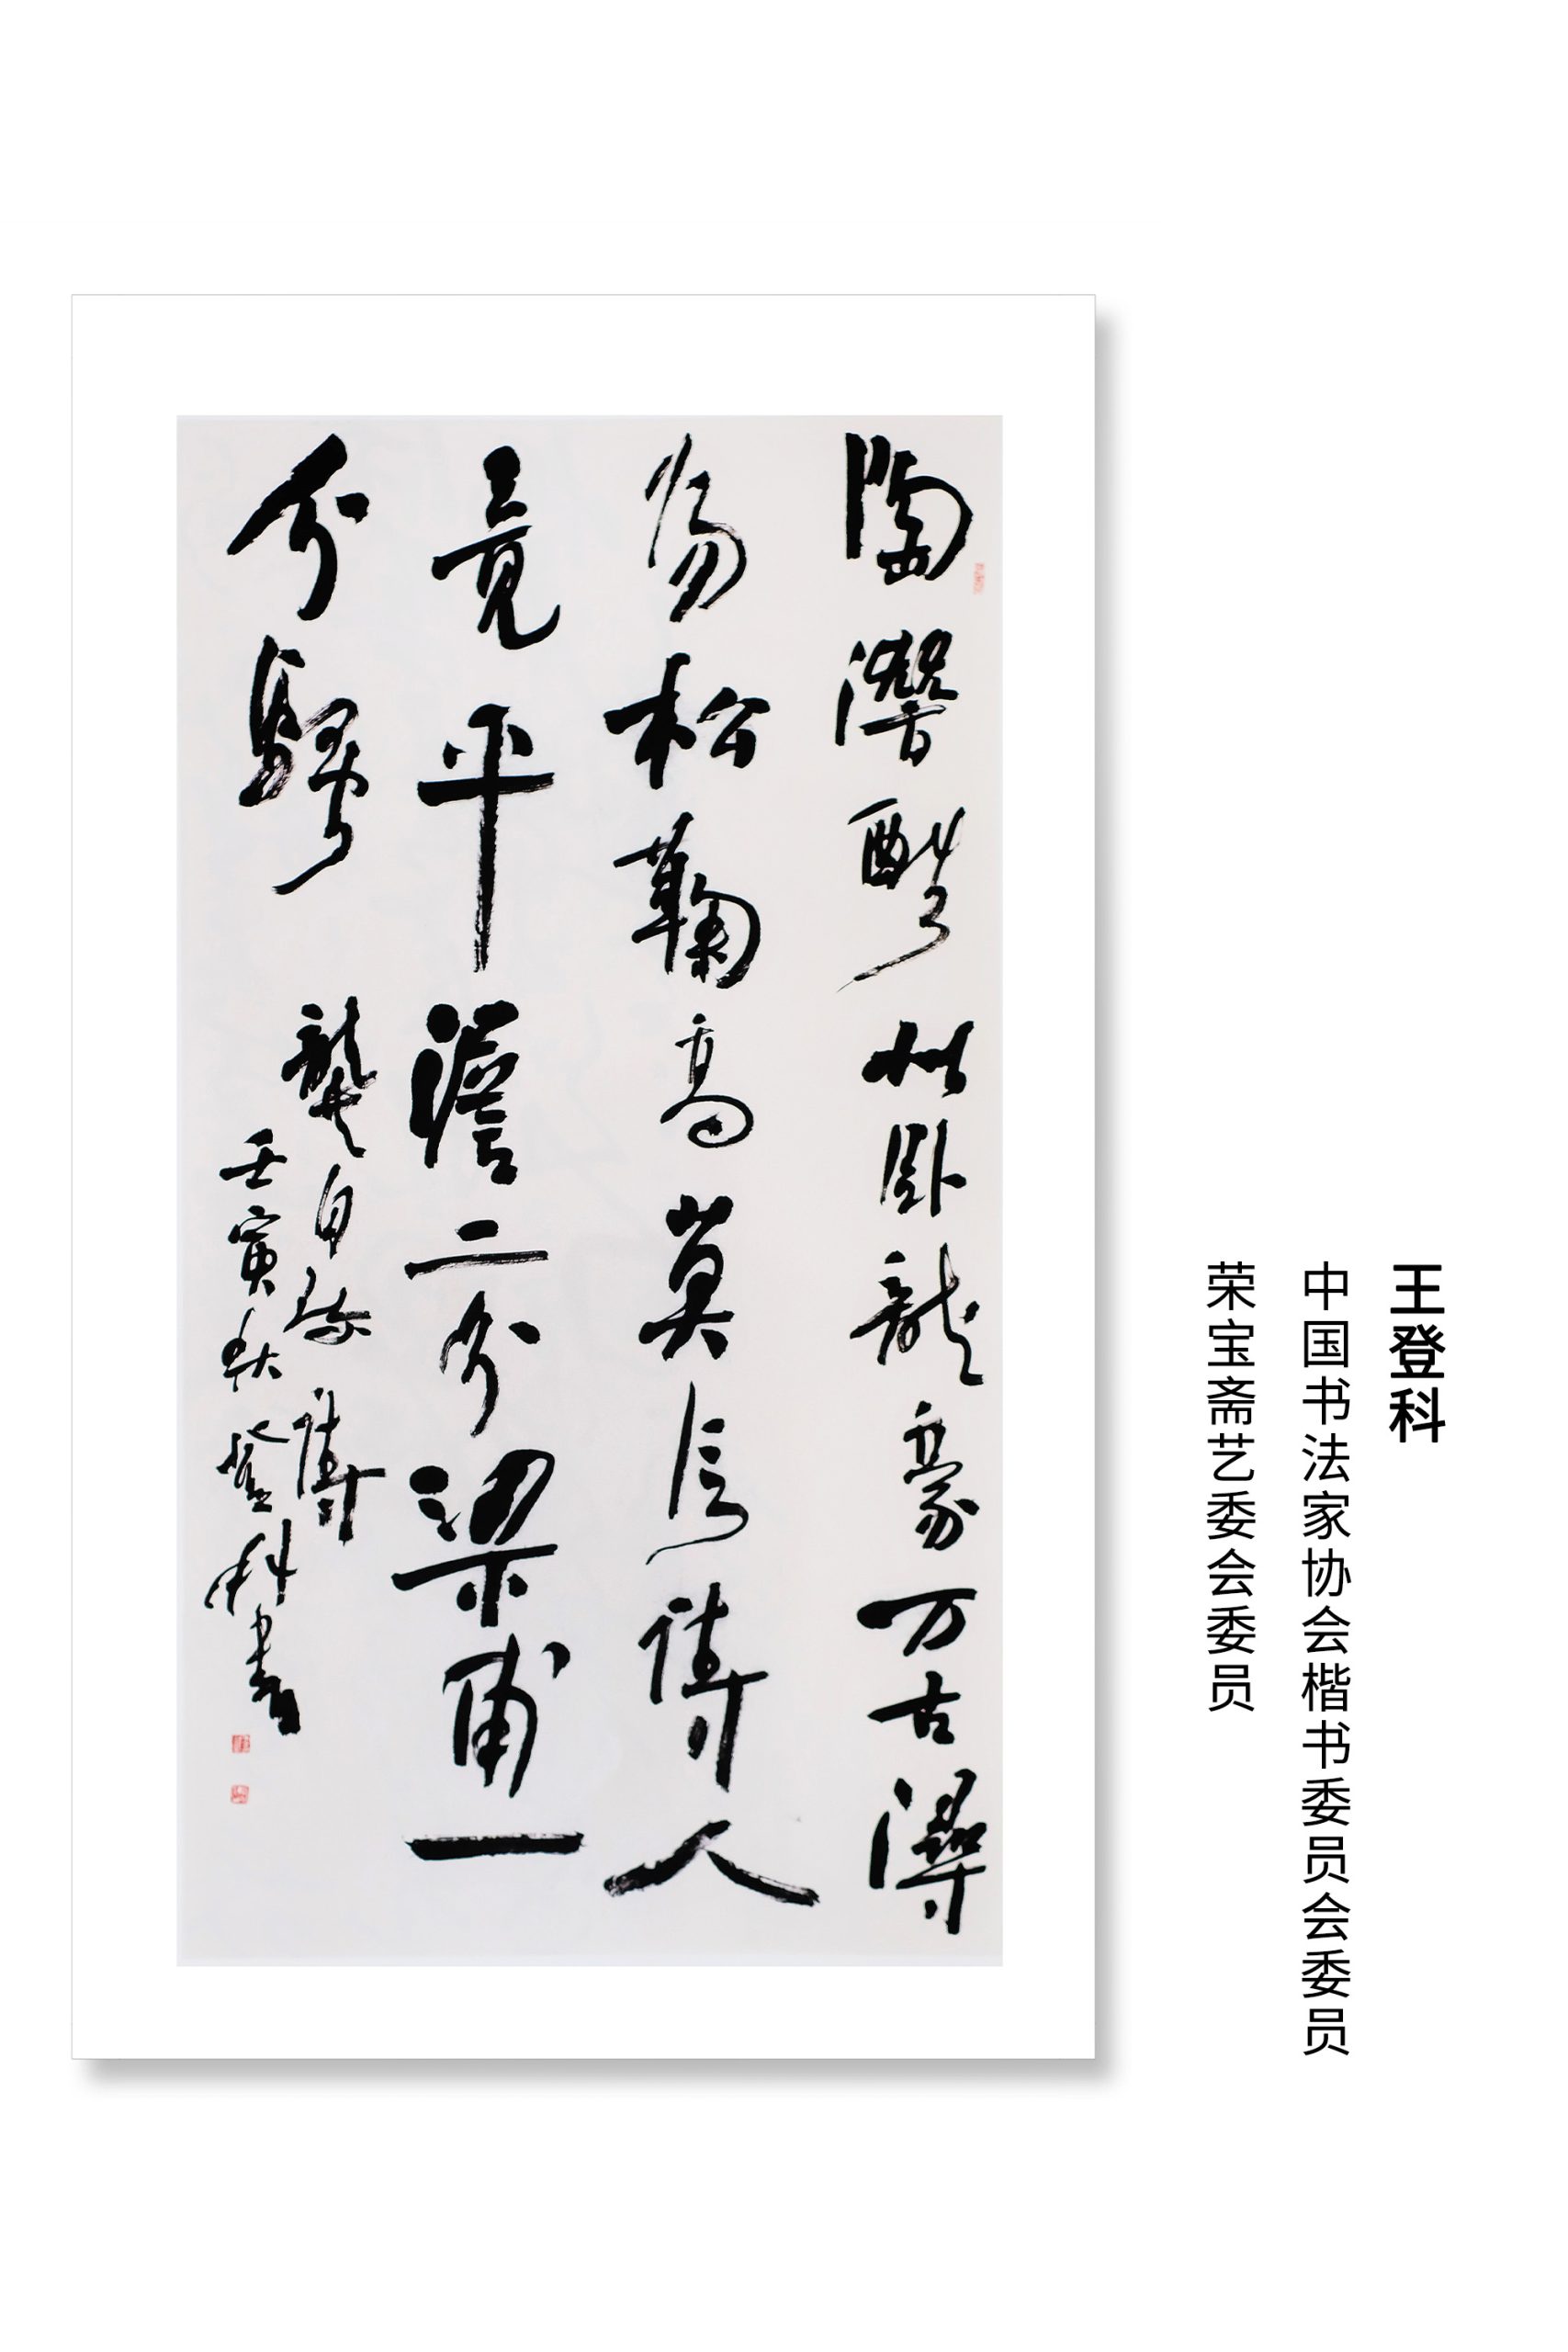 王登科
中国书法家协会楷书委员会委员
荣宝斋艺委会委员
陶潛酷似卧龍豪万古潯
陽松鞠高莫信詩人
竟平澹二分梁甫一
分騷
龔自珍詩
壬寅秋登科書